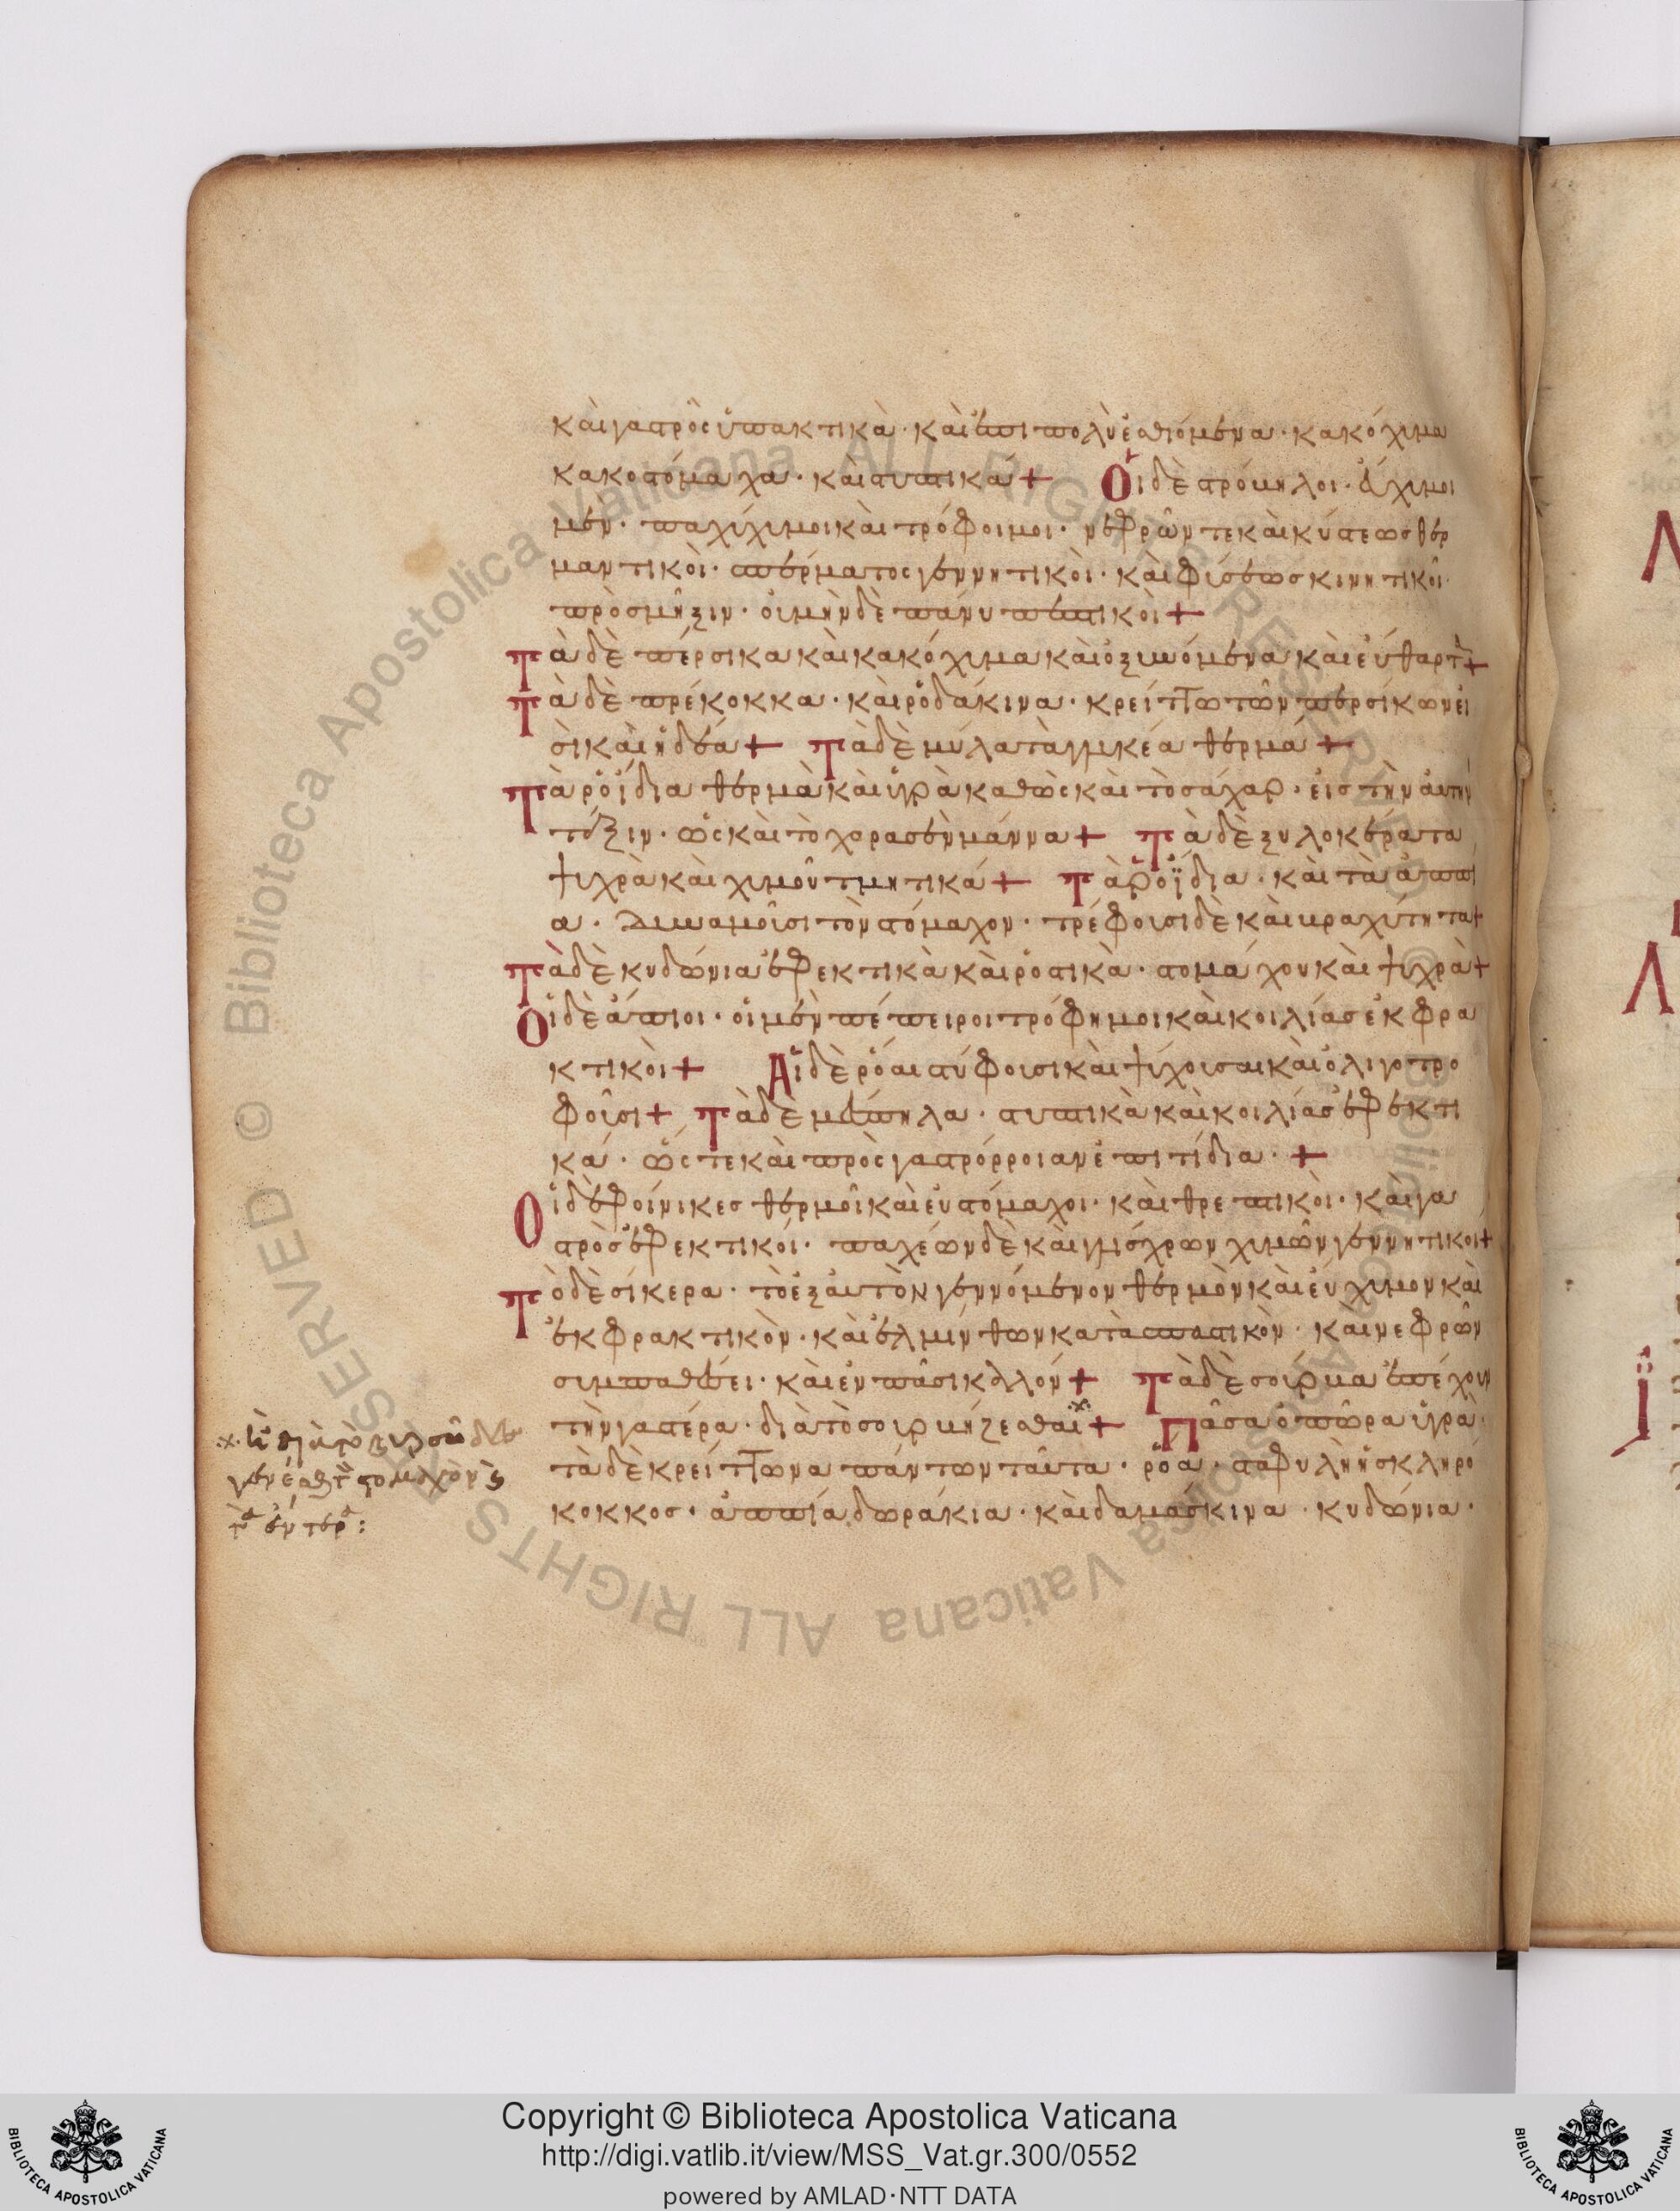 καὶ γαστρὸς ὑπακτικὰ· καὶ ἐπι πολὺ ἐσθιόμενα· κακόχυμα
κακοστόμαχα· καὶ στυπτικά +   Οἱ δὲ στρόμηλοι· ἄχυμοι
μὲν· παχύχυμοι καὶ τρόφοιμοι· νεφρῶν τε καὶ κύστεως θερ
μαντικοὶ· σπέρματος γεννητικοὶ· καὶ φύσεως κινητικοὶ·
πρὸς μῆξιν· οἱ μὴν δὲ πάνυ πεπτικοὶ +
Τὰ δὲ πέρσικα καὶ κακόχυμα καὶ ὀξινόμενα καὶ εὔθαρτὰ +
Τὰ δὲ πρέκοκκα· καὶ ῥοδάκινα· κρείττω τῶν περσίκων εἰ
σὶ καὶ ἡδέα +   Τὰ δὲ μύλα τὰ γλυκέα θερμὰ +
Τὰ ῥοΐδια θερμὰ καὶ ὑγρὰ καθὼς καὶ τὸ σάχαρ· εἰς τὴν αὐτὴν
τάξιν· ὡς καὶ τὸ χορασὲν μάννα +   Τὰ δὲ ξυλοκέρατα
ψυχρὰ καὶ χυμοῦ τμητικά +   Τὰ ῥοΐδια· καὶ τὰ ἀππί
α· δυναμοῦσι τὸν στόμαχον· τρέφουσι δὲ καὶ τραχύτητα +
Τὰ δὲ κυδώνια ἐφεκτικὰ καὶ ῥοστικὰ· στομάχου καὶ ψυχρὰ +
Οἱ δὲ ἄπιοι· οἱ μὲν πέπειροι τρόφημοι καὶ κοιλίας ἐκφρα
κτικοὶ +   Αἱ δὲ ῥόαι στύφουσι καὶ ψύχουσαι καὶ ὀλιγοτρο
φοῦσι +   Τὰ δὲ μέσπηλα· στυπτικὰ καὶ κοιλίας ἐφεκτι
κά· ὥς τε καὶ πρὸς γαστρόρροιαν ἐπιτίδια· +
Οἱ δὲ φοίνικες θερμοὶ καὶ εὐστόμαχοι· καὶ θρεπτικοὶ· καὶ γα
στρὸς ἐφεκτικοί· παχέων δὲ καὶ γλίσχρων χυμῶν γεννητικοι +
Τὸ δὲ σίκερα· τὸ ἐξ αὐτὸν γεννόμενον θερμὸν καὶ εὔχυμον καὶ
ἐκφρακτικὸν· καὶ ἐλμίνθων κατασπαστικὸν· καὶ νεφρῶν
συμπαθείει· καὶ ἐν πᾶσι καλλόν +   Τὰ δὲ σοίρμα ἐπέχουν
τὴν γαστέρα· διὰ τὸ σοιρμήζεσθαι +   Πᾶσα ὀπῶρα ὑγρὰ·
τὰ δὲ κρείττωνα πάντων ταῦτα· ῥόα· σταφυλὴ ἡ σκληρό
κοκκος· ἀππία δωράκια· καὶ δαμάσκινα· κυδώνια·
Copyright © Biblioteca Apostolica Vaticana
http://digi.vatlib.it/view/MSS_Vat.gr.300/0552
powered by AMLAD·NTT DATA
BIBLIOTECA APOSTOLICA VATICANA
BIBLIOTECA APOSTOLICA VATICANA
© Biblioteca Apostolica Vaticana ALL RIGHTS RESERVED © Biblioteca Apostolica Vaticana ALL RIGHTS RESERVED